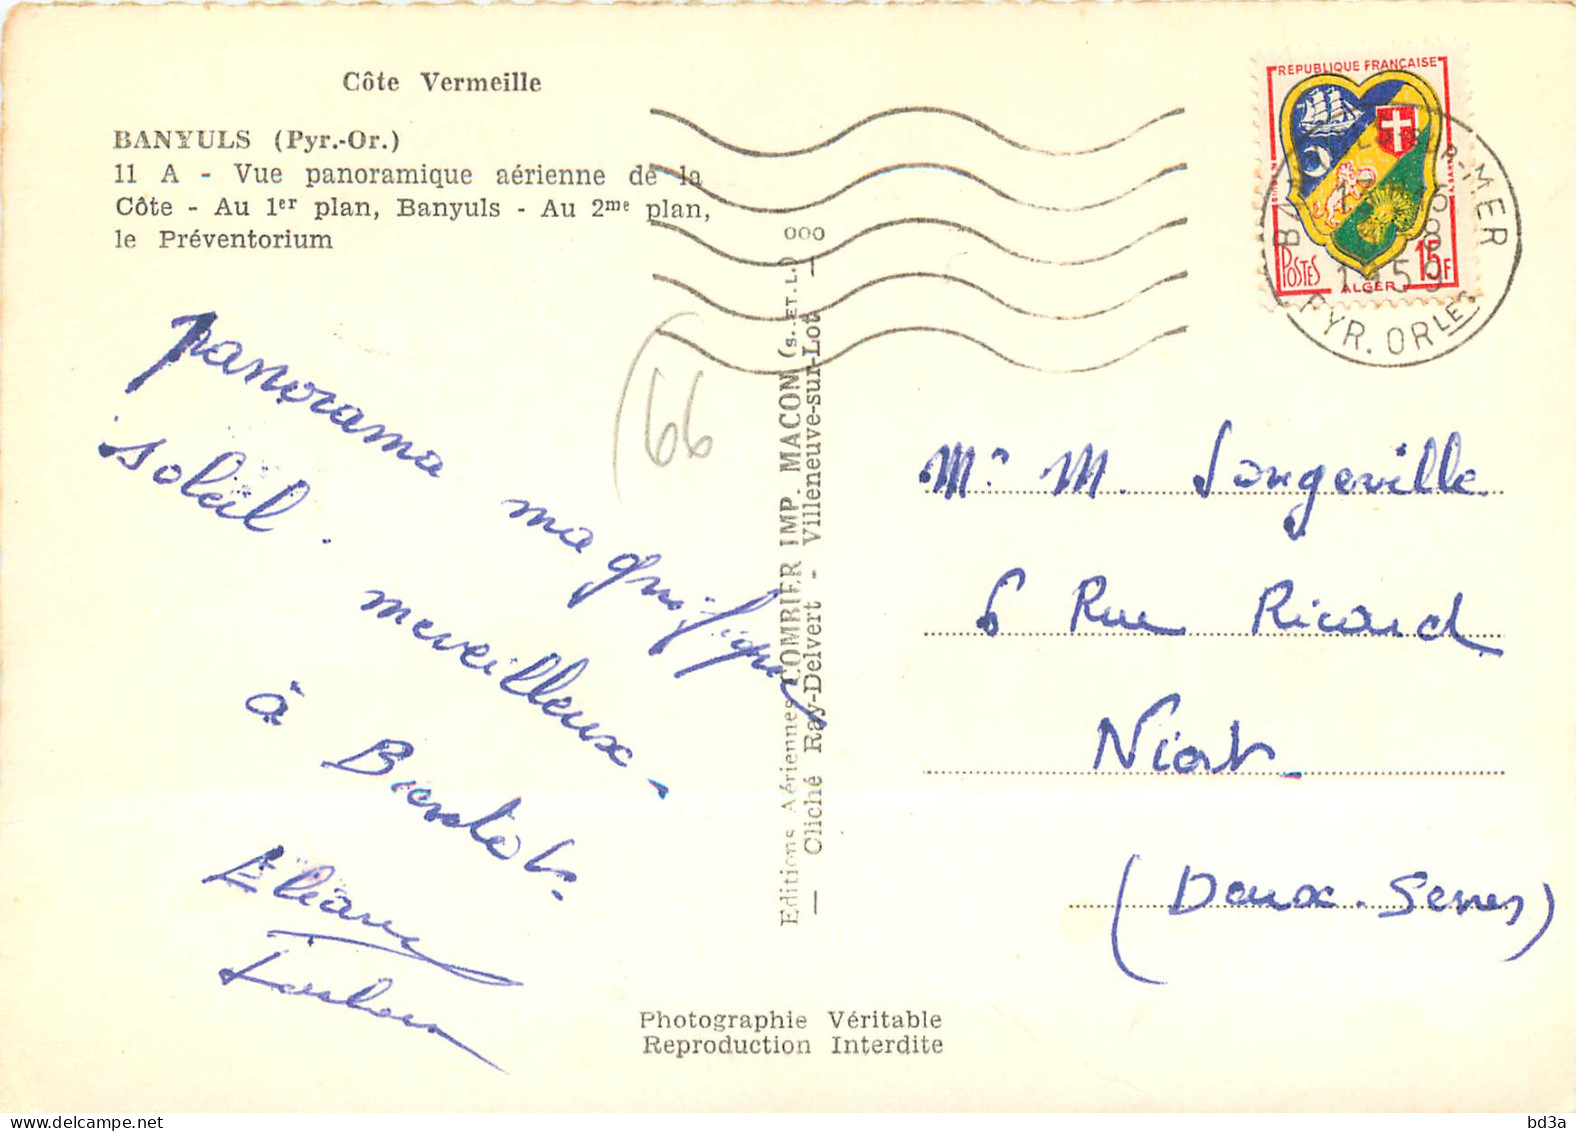 Côte Vermeille
BANYULS (Pyr.-Or.)
11 A - Vue panoramique aérienne de la
Côte - Au 1er plan, Banyuls - Au 2me plan,
le Préventorium
panorama magnifique
soleil. merveilleux -
à Bientôt
Eliane
66
Editions Aériennes COMBIER IMP. MACON (S. ET. L.)
— Cliché Ray-Delvert - Villeneuve-sur-Lot —
Photographie Véritable
Reproduction Interdite
REPUBLIQUE FRANÇAISE
POSTES
15F
ALGER
SUR-MER
1959
PYR. ORLES
Mr. M. Longeville
6 Rue Ricard
Niort
(Deux-Sevres)
bd3a